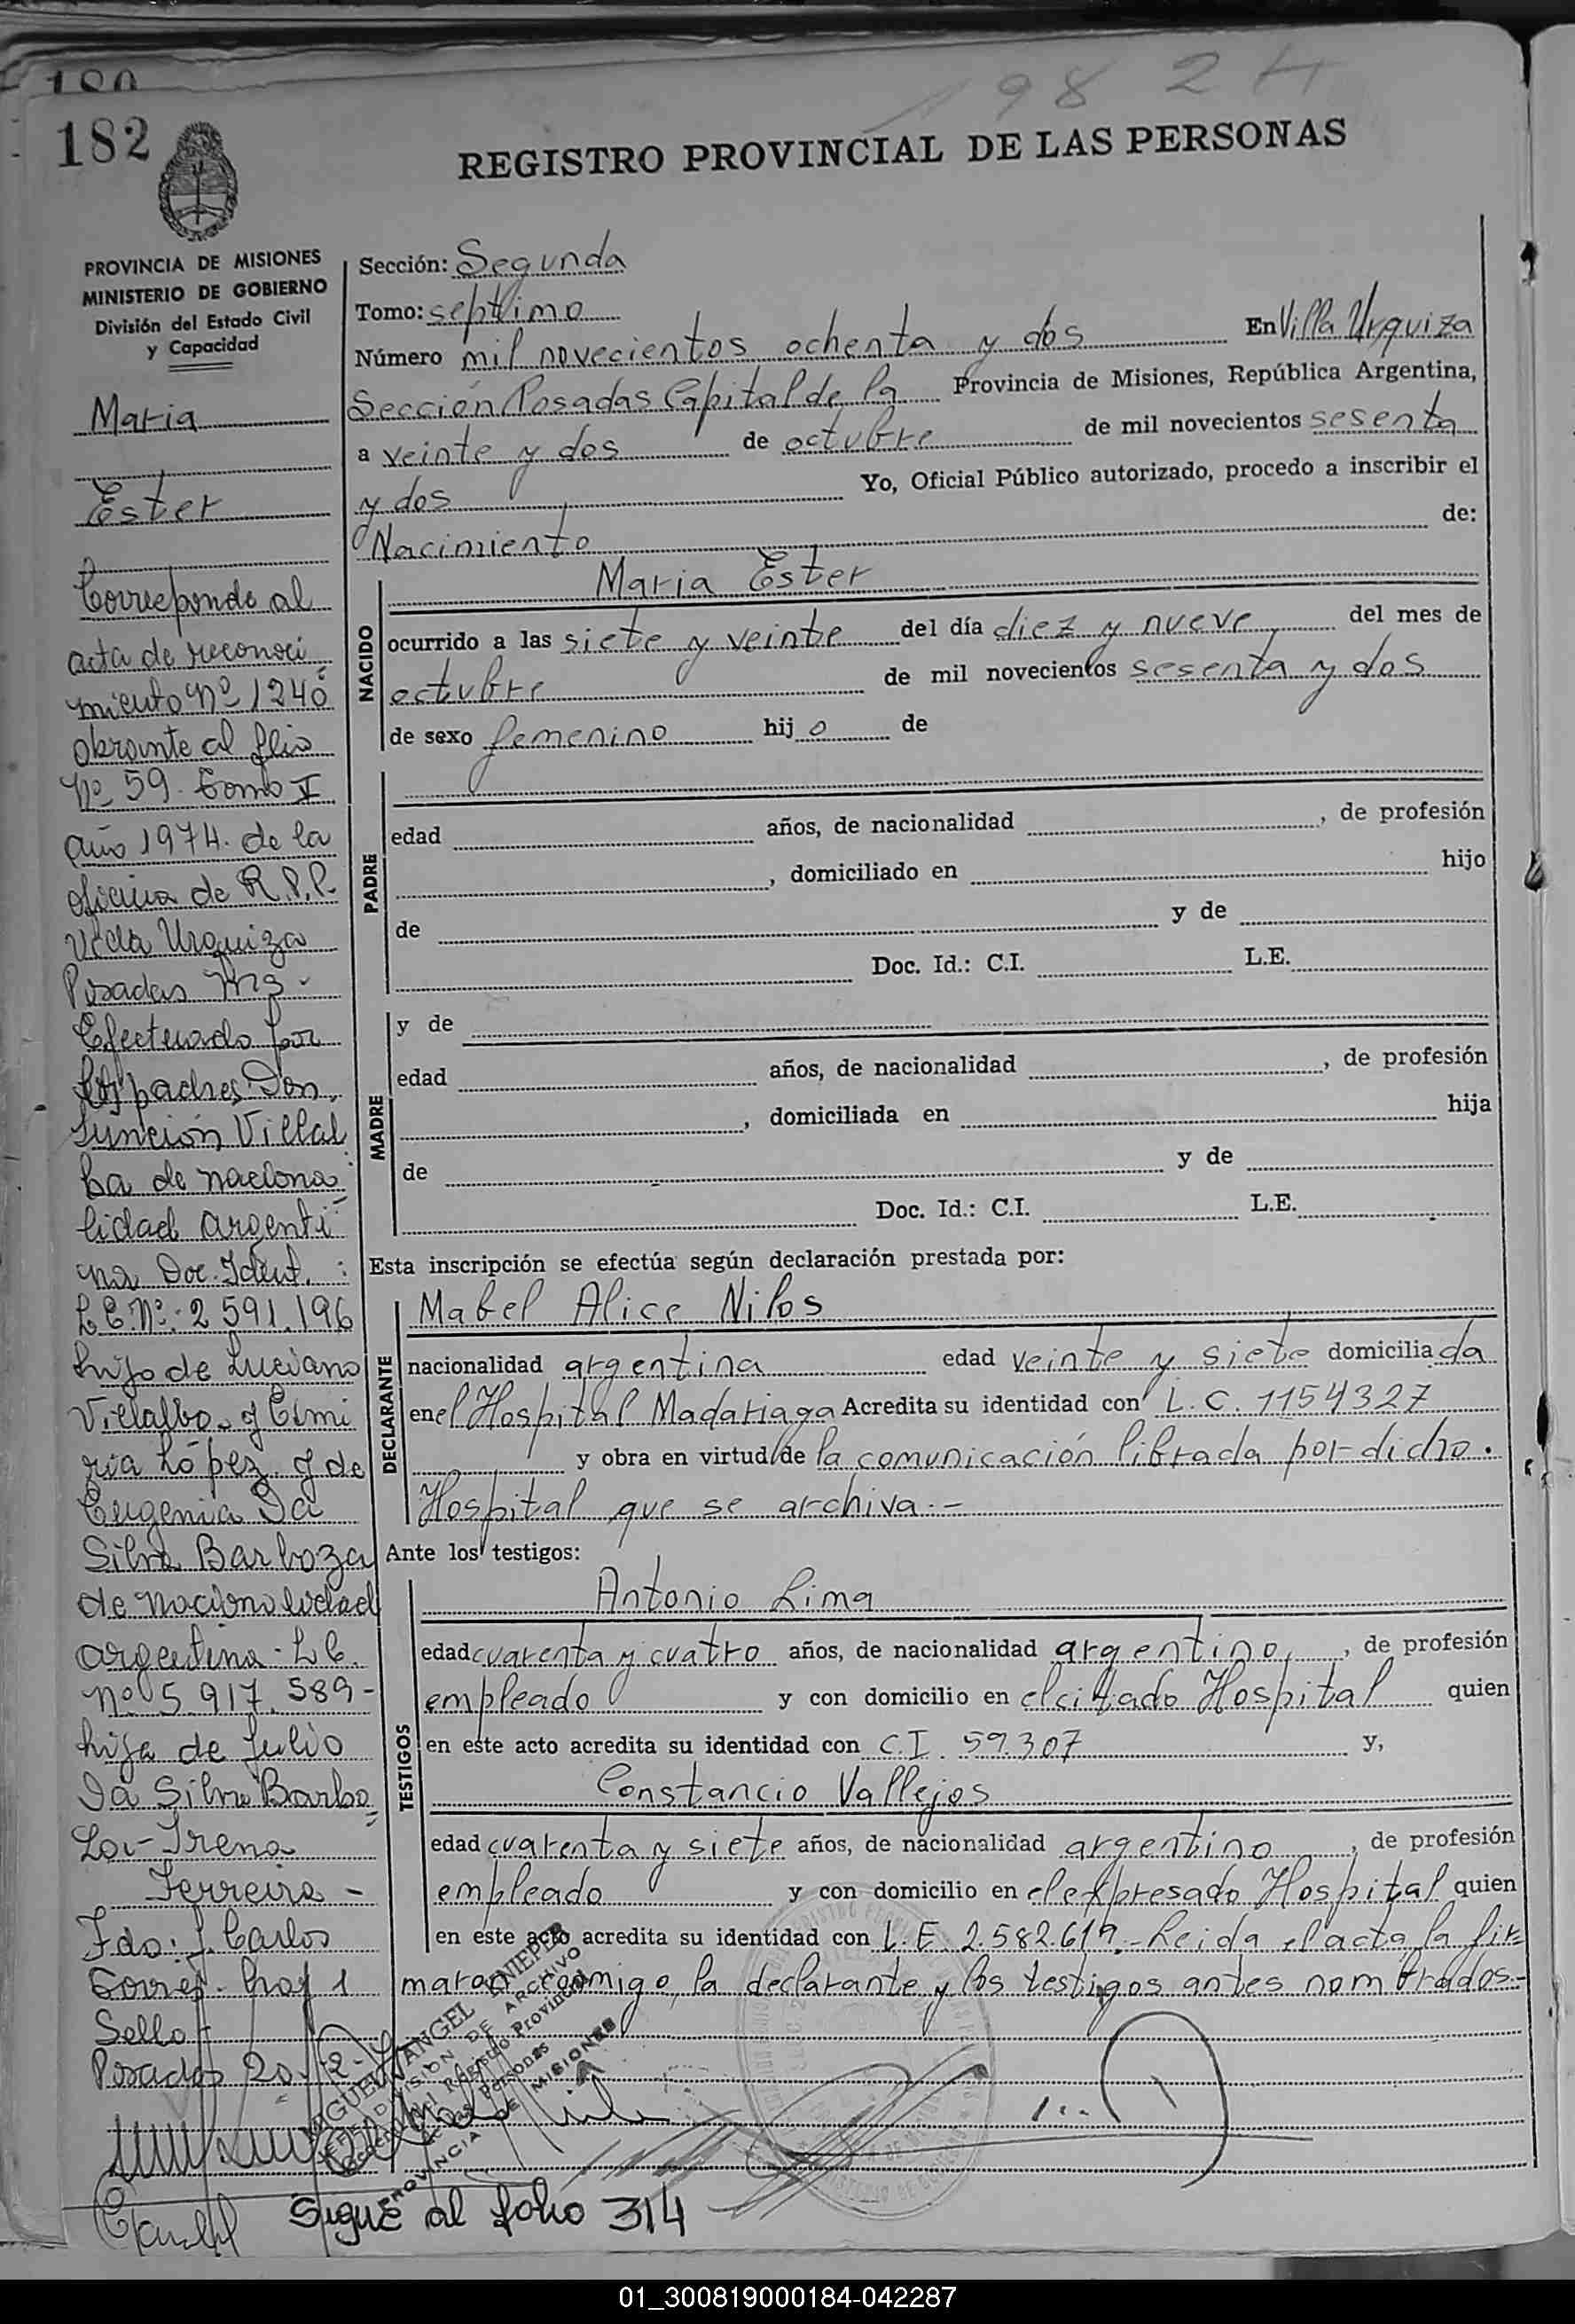 180
182
1982 H
REGISTRO PROVINCIAL DE LAS PERSONAS
PROVINCIA DE MISIONES
MINISTERIO DE GOBIERNO
División del Estado Civil
y Capacidad
Maria
Ester
Corresponde al
acta de reconoci
miento nº 1240
obrante al flio
Nº 59 Tomo I
año 1974. de la
oficina de R.P.P.
Villa Urquiza
Posadas Ms-
Efectuado por
los padres Don,
Sunción Villal
ba de naciona
lidad argenti
na Doc. Ident. :
L.E.Nº: 2 591.196
hijo de Luciano
Villalba y
López y de
Eugenia Da
Silva Barboza
de nacionalidad
argentina - L.C.
nº 5.917.589-
hija de Julio
Da Silva Barbo
za-Irena
Ferreira -
Fdo: J. Carlos
Torres. hay 1
Sello
Posadas 20
Sección: Segunda
Tomo: septimo
Número mil novecientos ochenta y dos En Villa Urquiza
Sección Posadas Capital de la Provincia de Misiones, República Argentina,
a veinte y dos de octubre de mil novecientos sesenta
y dos Yo, Oficial Público autorizado, procedo a inscribir el
Nacimiento de:
NACIDO
Maria Ester
ocurrido a las siete y veinte del día diez y nueve del mes de
octubre de mil novecientos sesenta y dos
de sexo femenino hij o de
PADRE
edad años, de nacionalidad , de profesión
, domiciliado en hijo
de y de
Doc. Id.: C.I. L.E.
MADRE
y de
edad años, de nacionalidad , de profesión
, domiciliada en hija
de y de
Doc. Id.: C.I. L.E.
Esta inscripción se efectúa según declaración prestada por:
DECLARANTE
Mabel Alice Nilos
nacionalidad argentina edad veinte y siete domicilia da
en el Hospital Madariaga Acredita su identidad con L.C. 1154327
y obra en virtud de la comunicación librada por dicho.
Hospital que se archiva.-
Ante los testigos:
TESTIGOS
Antonio Lima
edad cuarenta y cuatro años, de nacionalidad argentino, , de profesión
empleado y con domicilio en el citado Hospital quien
en este acto acredita su identidad con C.I. 59.307 y,
Constancio Vallejos
edad cuarenta y siete años, de nacionalidad argentino , de profesión
empleado y con domicilio en el expresado Hospital quien
en este acto acredita su identidad con L.E. 2.582.619.- Leida el acta, la fir=
maron conmigo, la declarante y los testigos antes nombrados.-
MIGUEL ANGEL KNIEPER
DIVISION DE ARCHIVO
Registro Provincial
de las Personas
PROVINCIA DE MISIONES
Sigue al folio 314
01_300819000184-042287